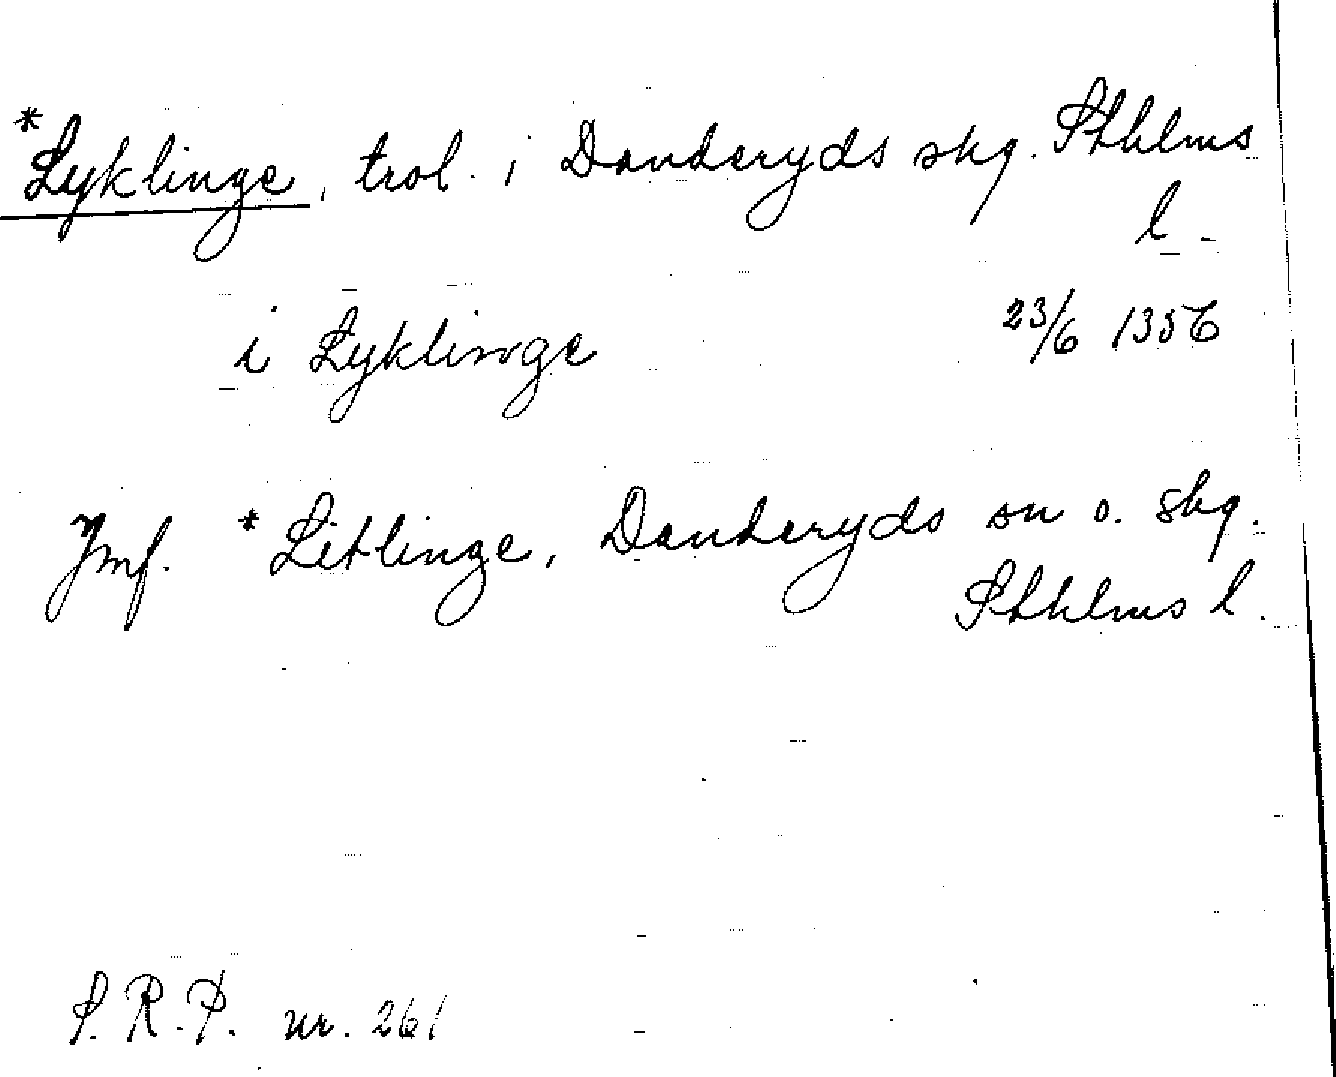 *Lyklinge, trol. i Danderyds skg. Sthlms
l.
i Lyklinge 23/6 1356
Jmf. *Litlinge, Danderyds sn o. skg.
Sthlms l.
S.R.P. nr. 261